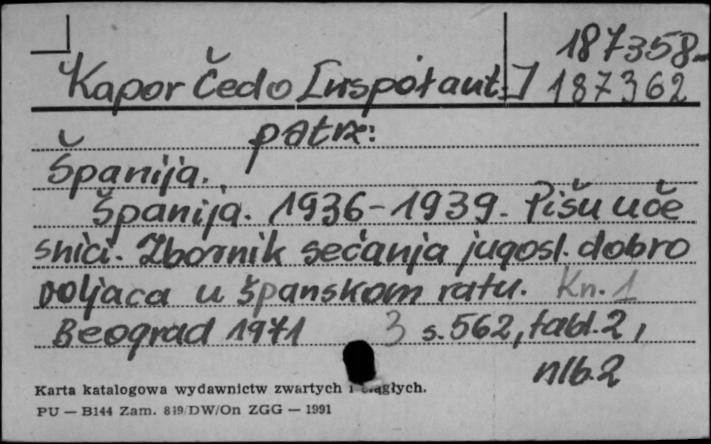 187358-
Kapor Čedo [współaut.] 187362
patrz:
Španija.
Španija. 1936-1939. Pišu uče
snici. Zbornik sećanja jugosl. dobro
voljaca u španskom ratu. Kn. 1
Beograd 1971 3 s. 562, tabl. 2,
nlb. 2
Karta katalogowa wydawnictw zwartych i ciągłych.
PU — B144 Zam. 819/DW/On ZGG — 1991